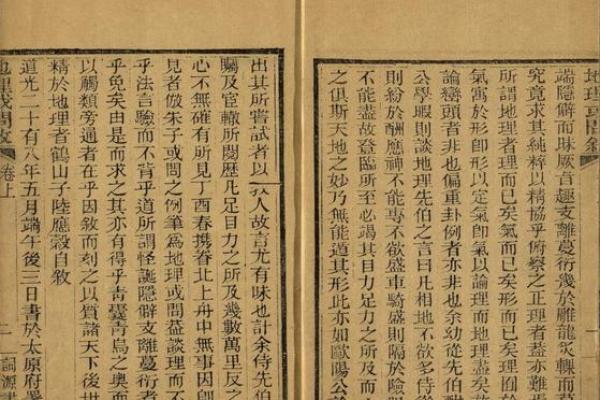 地理或問敘
端隱僻而昧厥音趣支離蔓衍幾於雕龍炙輠而莫
究竟求其純粹以精協乎俯察之正理者蓋亦難
所謂地理者理而已矣氣而已矣形而已矣理囿於
氣寓於形卽形以定氣卽氣以論理而地理盡矣故
論巒頭者非也偏重卦例者亦非也余幼從先伯
公學暇則談地理先伯之言曰凡相地不欲多侍
則紛於酬應神不能專不欲盛車騎盛則隔於險
不能盡故登臨所至必竭其目力足力之所及而
之俱斯天地之妙乃無能遁其形此亦如歐陽公
出其所嘗試者以敎人故言尤有味也計余侍先伯
矚及宦轍所閱歷凡足目力之所及幾數萬里反之
心不無確有所見丁酉春攜眷北上舟中無事因卽
見者倣朱子或問之例筆爲地理或問葢談理而不
乎法言驗而不背乎道所謂怪誕隱僻支離蔓衍者
乎免矣由是而求之其亦有得乎靑囊靑烏之奧而
以觸類旁通者在乎因敘而刻之以質諸天下後世
精於地理者鶴山子陸應穀自敘
道光二十有八年五月端午後三日書於太原府署
地理或問敘 卷上 詞源